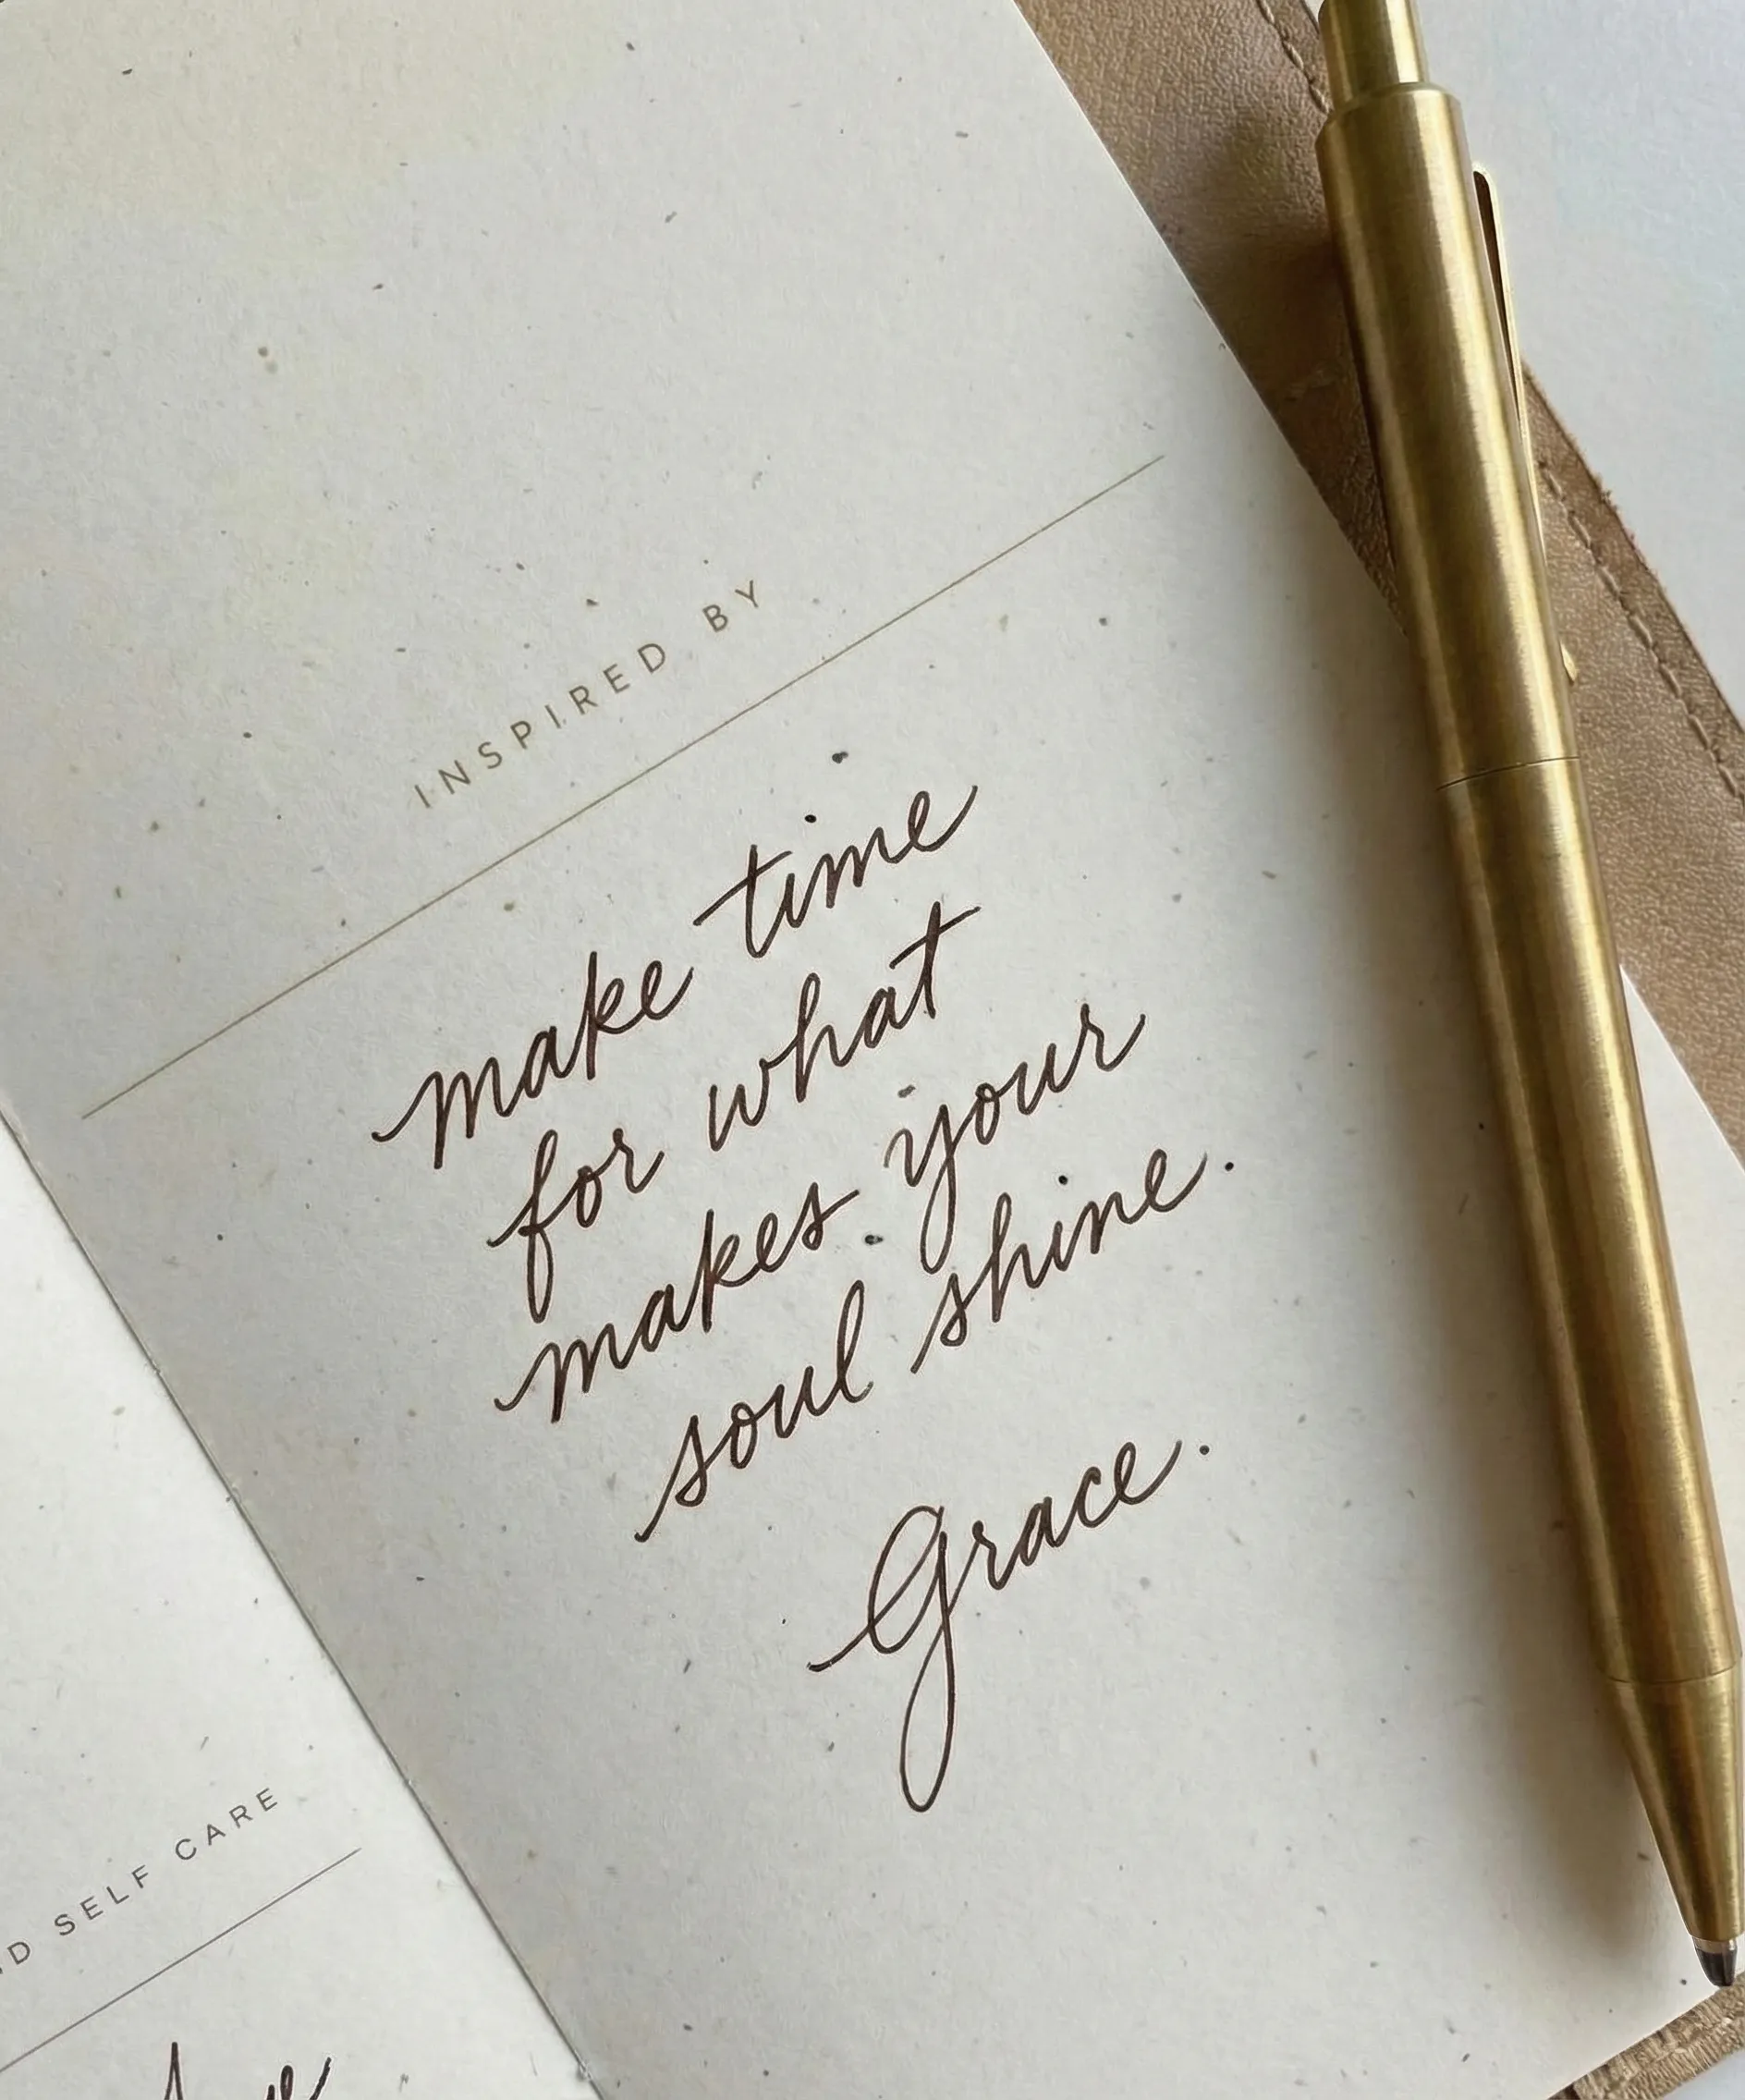 INSPIRED BY
make time
for what
makes your
soul shine.
Grace.
SELF CARE